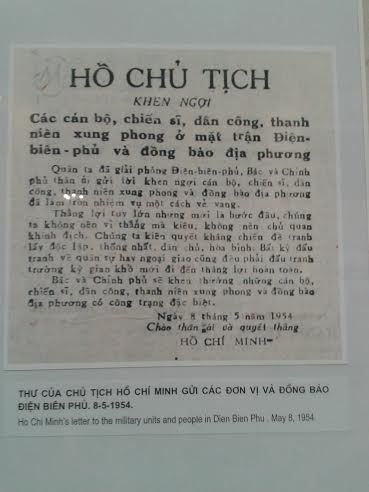 HỒ CHỦ TỊCH
KHEN NGỢI
Các cán bộ, chiến sĩ, dân công, thanh
niên xung phong ở mặt trận Điện-
biên-phủ và đồng bào địa phương
Quân ta đã giải phóng Điện-biên-phủ, Bác và Chính
phủ thân ái gửi lời khen ngợi cán bộ, chiến sĩ, dân
công, thanh niên xung phong và đồng bào địa phương
đã làm tròn nhiệm vụ một cách vẻ vang.
Thắng lợi tuy lớn nhưng mới là bước đầu, chúng
ta không nên vì thắng mà kiêu, không nên chủ quan
khinh địch. Chúng ta kiên quyết kháng chiến để tranh
lấy độc lập, thống nhất, dân chủ, hòa bình. Bất kỳ đấu
tranh về quân sự hay ngoại giao cũng đều phải đấu tranh
trường kỳ gian khổ mới đi đến thắng lợi hoàn toàn.
Bác và Chính phủ sẽ khen thưởng những cán bộ,
chiến sĩ, dân công, thanh niên xung phong và đồng bào
địa phương có công trạng đặc biệt.
Ngày 8 tháng 5 năm 1954
Chào thân ái và quyết thắng
HỒ CHÍ MINH
THƯ CỦA CHỦ TỊCH HỒ CHÍ MINH GỬI CÁC ĐƠN VỊ VÀ ĐỒNG BÀO
ĐIỆN BIÊN PHỦ. 8-5-1954.
Ho Chi Minh's letter to the military units and people in Dien Bien Phu . May 8, 1954